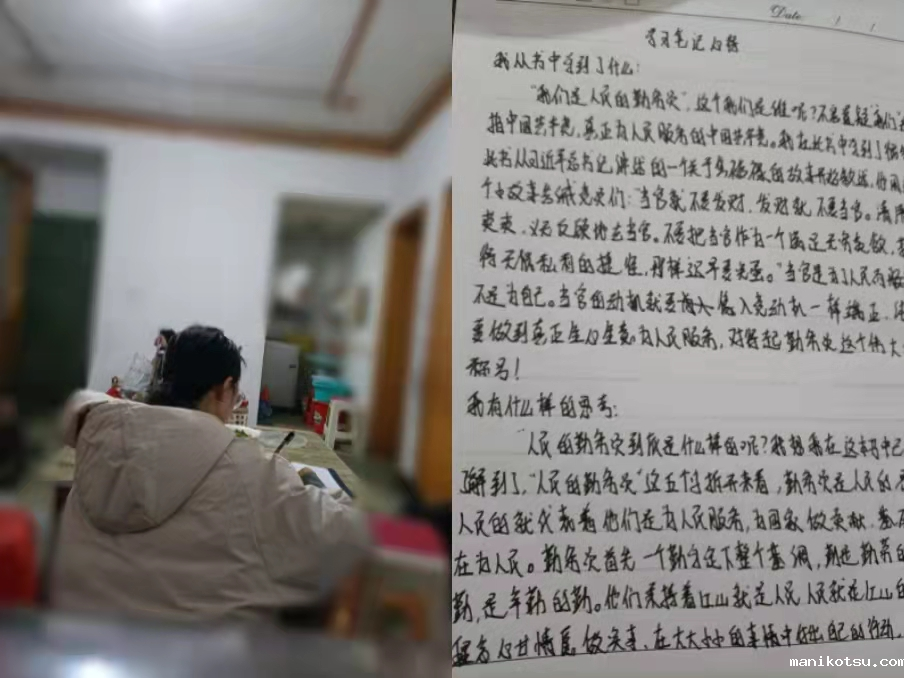 Date / /
学习笔记心得
我从书中学到了什么:
"我们是人民的勤务员",这个我们是谁呢?不容置疑"我们"
指中国共产党,真正为人民服务的中国共产党。我在此书中学到了很
此书从习近平总书记讲述的一个关于的故事开始叙述,他用
个小故事告诫党员们:"当官就不要发财,发财就不要当官。清
,义无反顾地去当官。不要把当官作为一个满足无穷贪欲,
得无限私利的捷径,那样迟早要完蛋。"当官是为了人民而
不是为自己。当官的动机就要入党动机一样端正,
要做到真正全心全意为人民服务,对得起勤务员这个伟大
称号!
我有什么样的思考:
人民的勤务员到底是什么样的呢?我想我在这本书中已
了解到了,"人民的勤务员"这五个字拆开来看,勤务员在人民的
人民的就代表着他们是为人民服务,为国家做贡献,
在为人民。勤务员首先一个勤字定下整个基调,勤是勤劳的
勤,是辛勤的勤。他们秉持着江山就是人民人民就是江山的
心甘情愿做实事,在大大小小的事情中作出自己的行动,
manikotsu.com